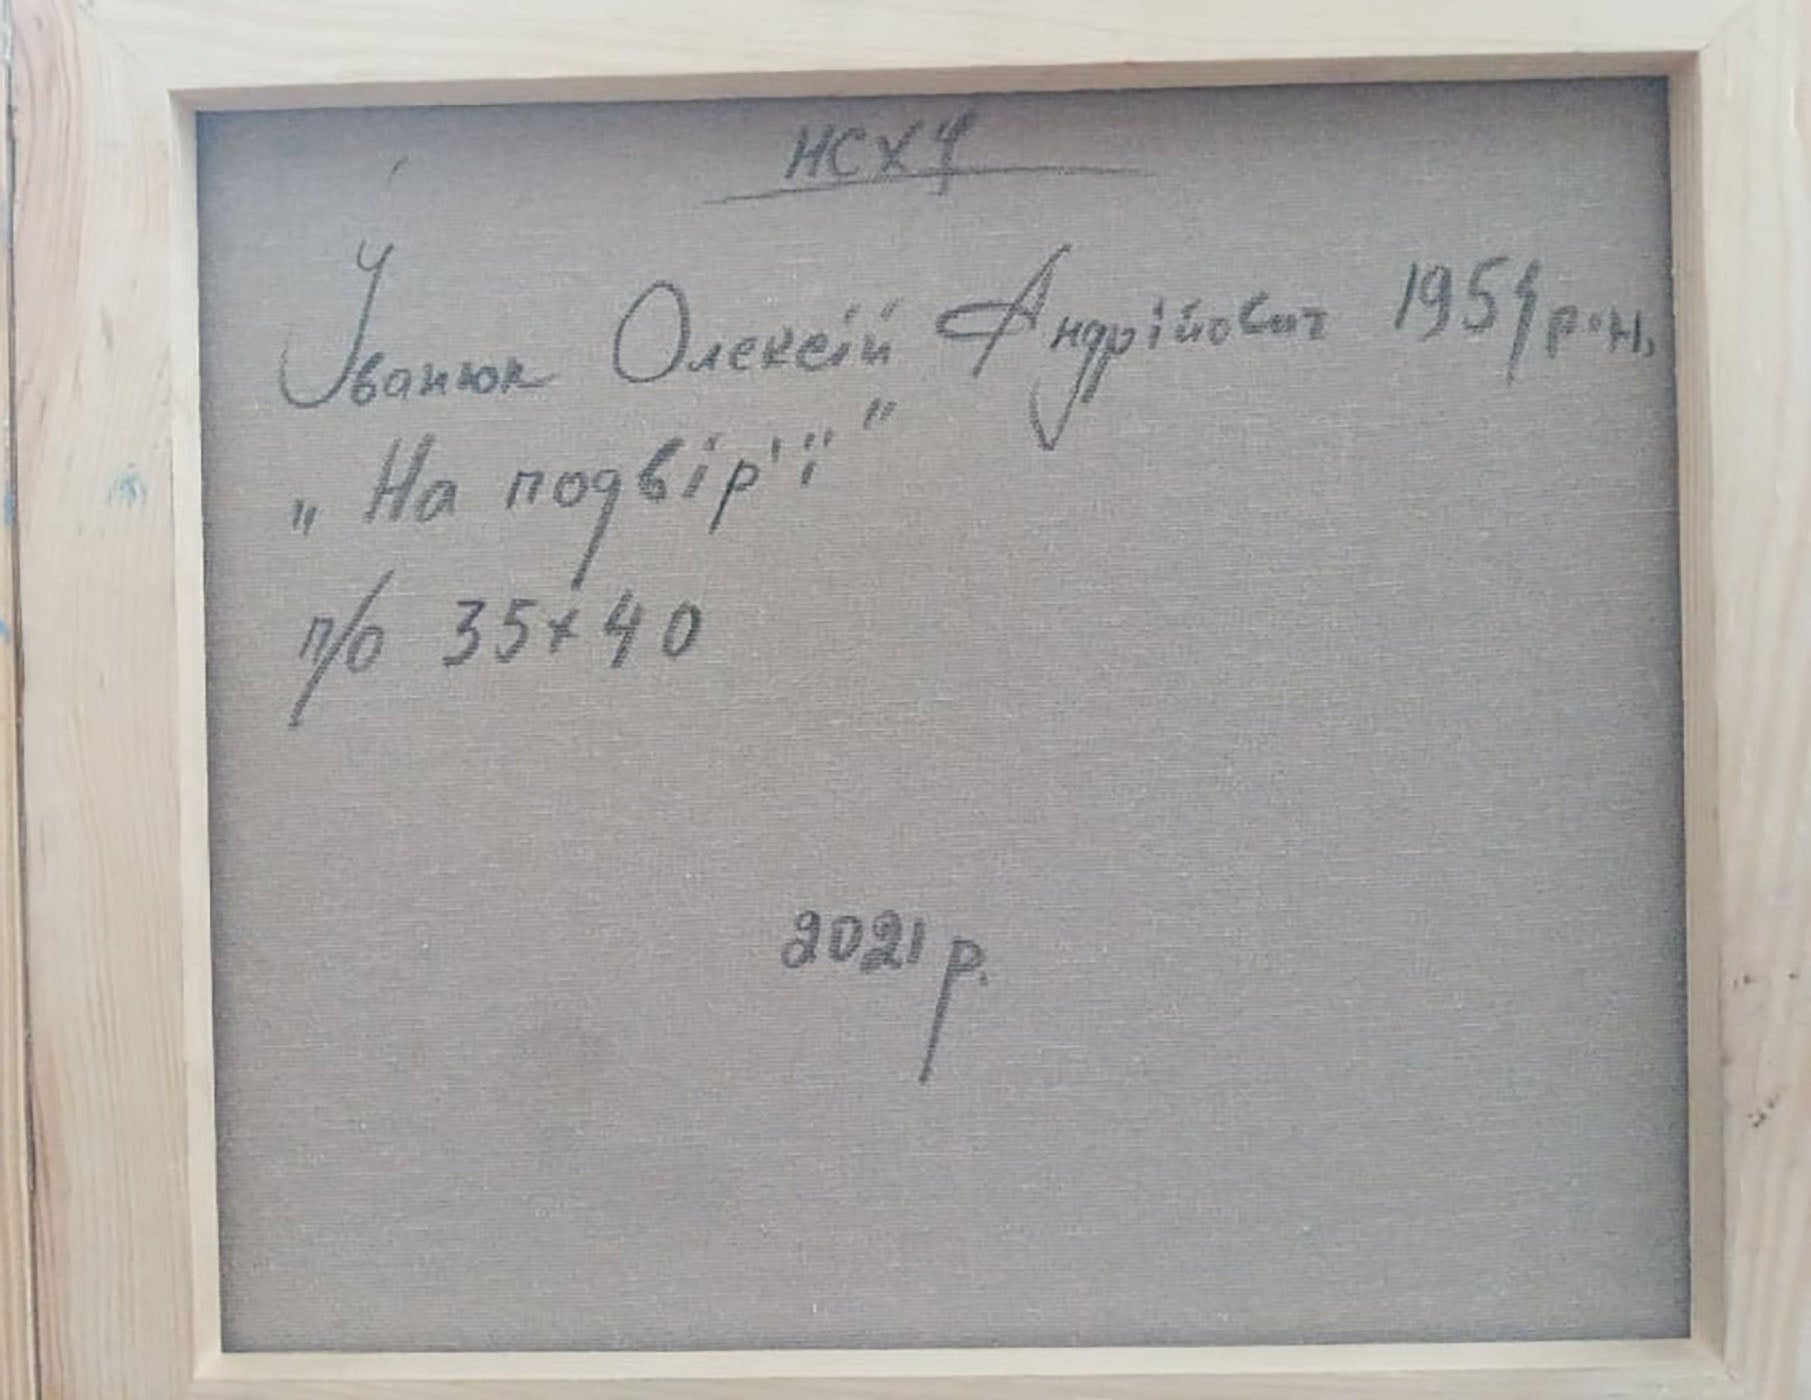 НСХУ
Іванюк Олексій Андрійович 1954 р.н.
„На подвір'ї"
п/о 35х40
2021 р.